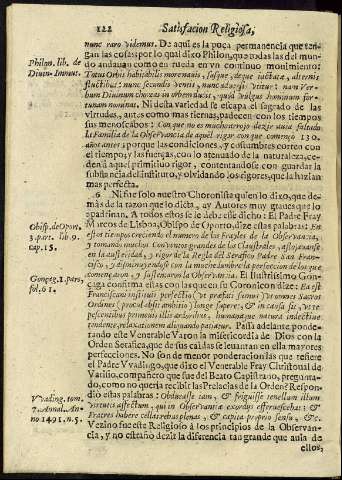 122 Satisfacion Religiosa,
nunc raro videmus. De aqui es la poca permanencia que ten-
gan las cosas: por lo qual dixo Philon, que todas las del mun-
do andauan como en rueda en vn continuo movimiento:
Philon. lib. de
Diuin. Immut.
Totus Orbis habitabilis more nauis, susque, deque iactata, alternis
fluctibus: nunc secundis ventis, nunc aduersis vtitur: nam Ver-
bum Diuinum choreas in orbem ducit, quod vulgus hominum for-
tunam nominat. Ni desta variedad se escapa el sagrado de las
virtudes, antes como mas tiernas, padecen con los tiempos
sus menoscabos: Con que no es mucho trajo dezir auia faltado
la Familia de la Obseruancia de aquel rigor con que començò 130.
años antes: porque las condiciones, y costumbres corren con
el tiempo; y las fuerças, con lo atenuado de la naturaleza, ce-
den à aquel primitiuo rigor, contentandose con guardar la
substancia del instituto, y oluidando los rigores, que la hazian
mas perfecta.
6. Ni fue solo nuestro Choronista quien lo dixo, que de-
mas de la razon que lo dicta, ay Autores muy graues que lo
apadrinan. A todos estos se le debe este dicho: El Padre Fray
Marcos de Lisboa, Obispo de Oporto, dize estas palabras: En
Obisp. de Opor.
3. part. lib. 9.
cap. 15.
este tiempo creciendo el numero de los Frayles de la Obseruancia,
y tomando muchos Conuentos grandes de los Claustrales, afloxauase
en la austeridad, y rigor de la Regla del Serafico Padre San Fran-
cisco, y disminuyendose con la muchedumbre la perfeccion de los que
començaron, y sustentaron la Obseruancia. El Ilustrissimo Gon-
Gonçag. 1. part.
fol. 61.
çaga confirma estas con las que en su Coronicon dize: Ea est
Franciscani instituti perfectio, vt præfati sanus, vt omnes Sacros
Ordines, procul absit ambitio, longe superet; & in causa sit, vt re-
pescentibus primæuis illis ardoribus, humanaque natura indefinite
tendente, relaxationem aliquando patiatur. Passa adelante ponde-
rando este Venerable Varon la misericordia de Dios con la
Orden Serafica, que de sus caidas se leuantan en ella mayores
perfecciones. No son de menor ponderacion las que refiere
el Padre Vvadingo, que dixo el Venerable Fray Christoual de
Varisio, compañero que fue del Beato Capistrano, pregunta-
do, como no queria recibir las Prelacias de la Orden? Respon-
Vvading. tom.
7. Annal. An-
no 1491. n. 5.
diò estas palabras: Obtuasse tam, & frigusse tenellum illum
virtutis affectum, qui in Obseruantiæ exordijs efferuescebat: &
Fratres habere cellas rebus plenas, & capita proprio sensu, &c.
Vezino fue este Religioso à los principios de la Obseruan-
cia, y no estraño dezir la diferencia tan grande que auia de
ellos,